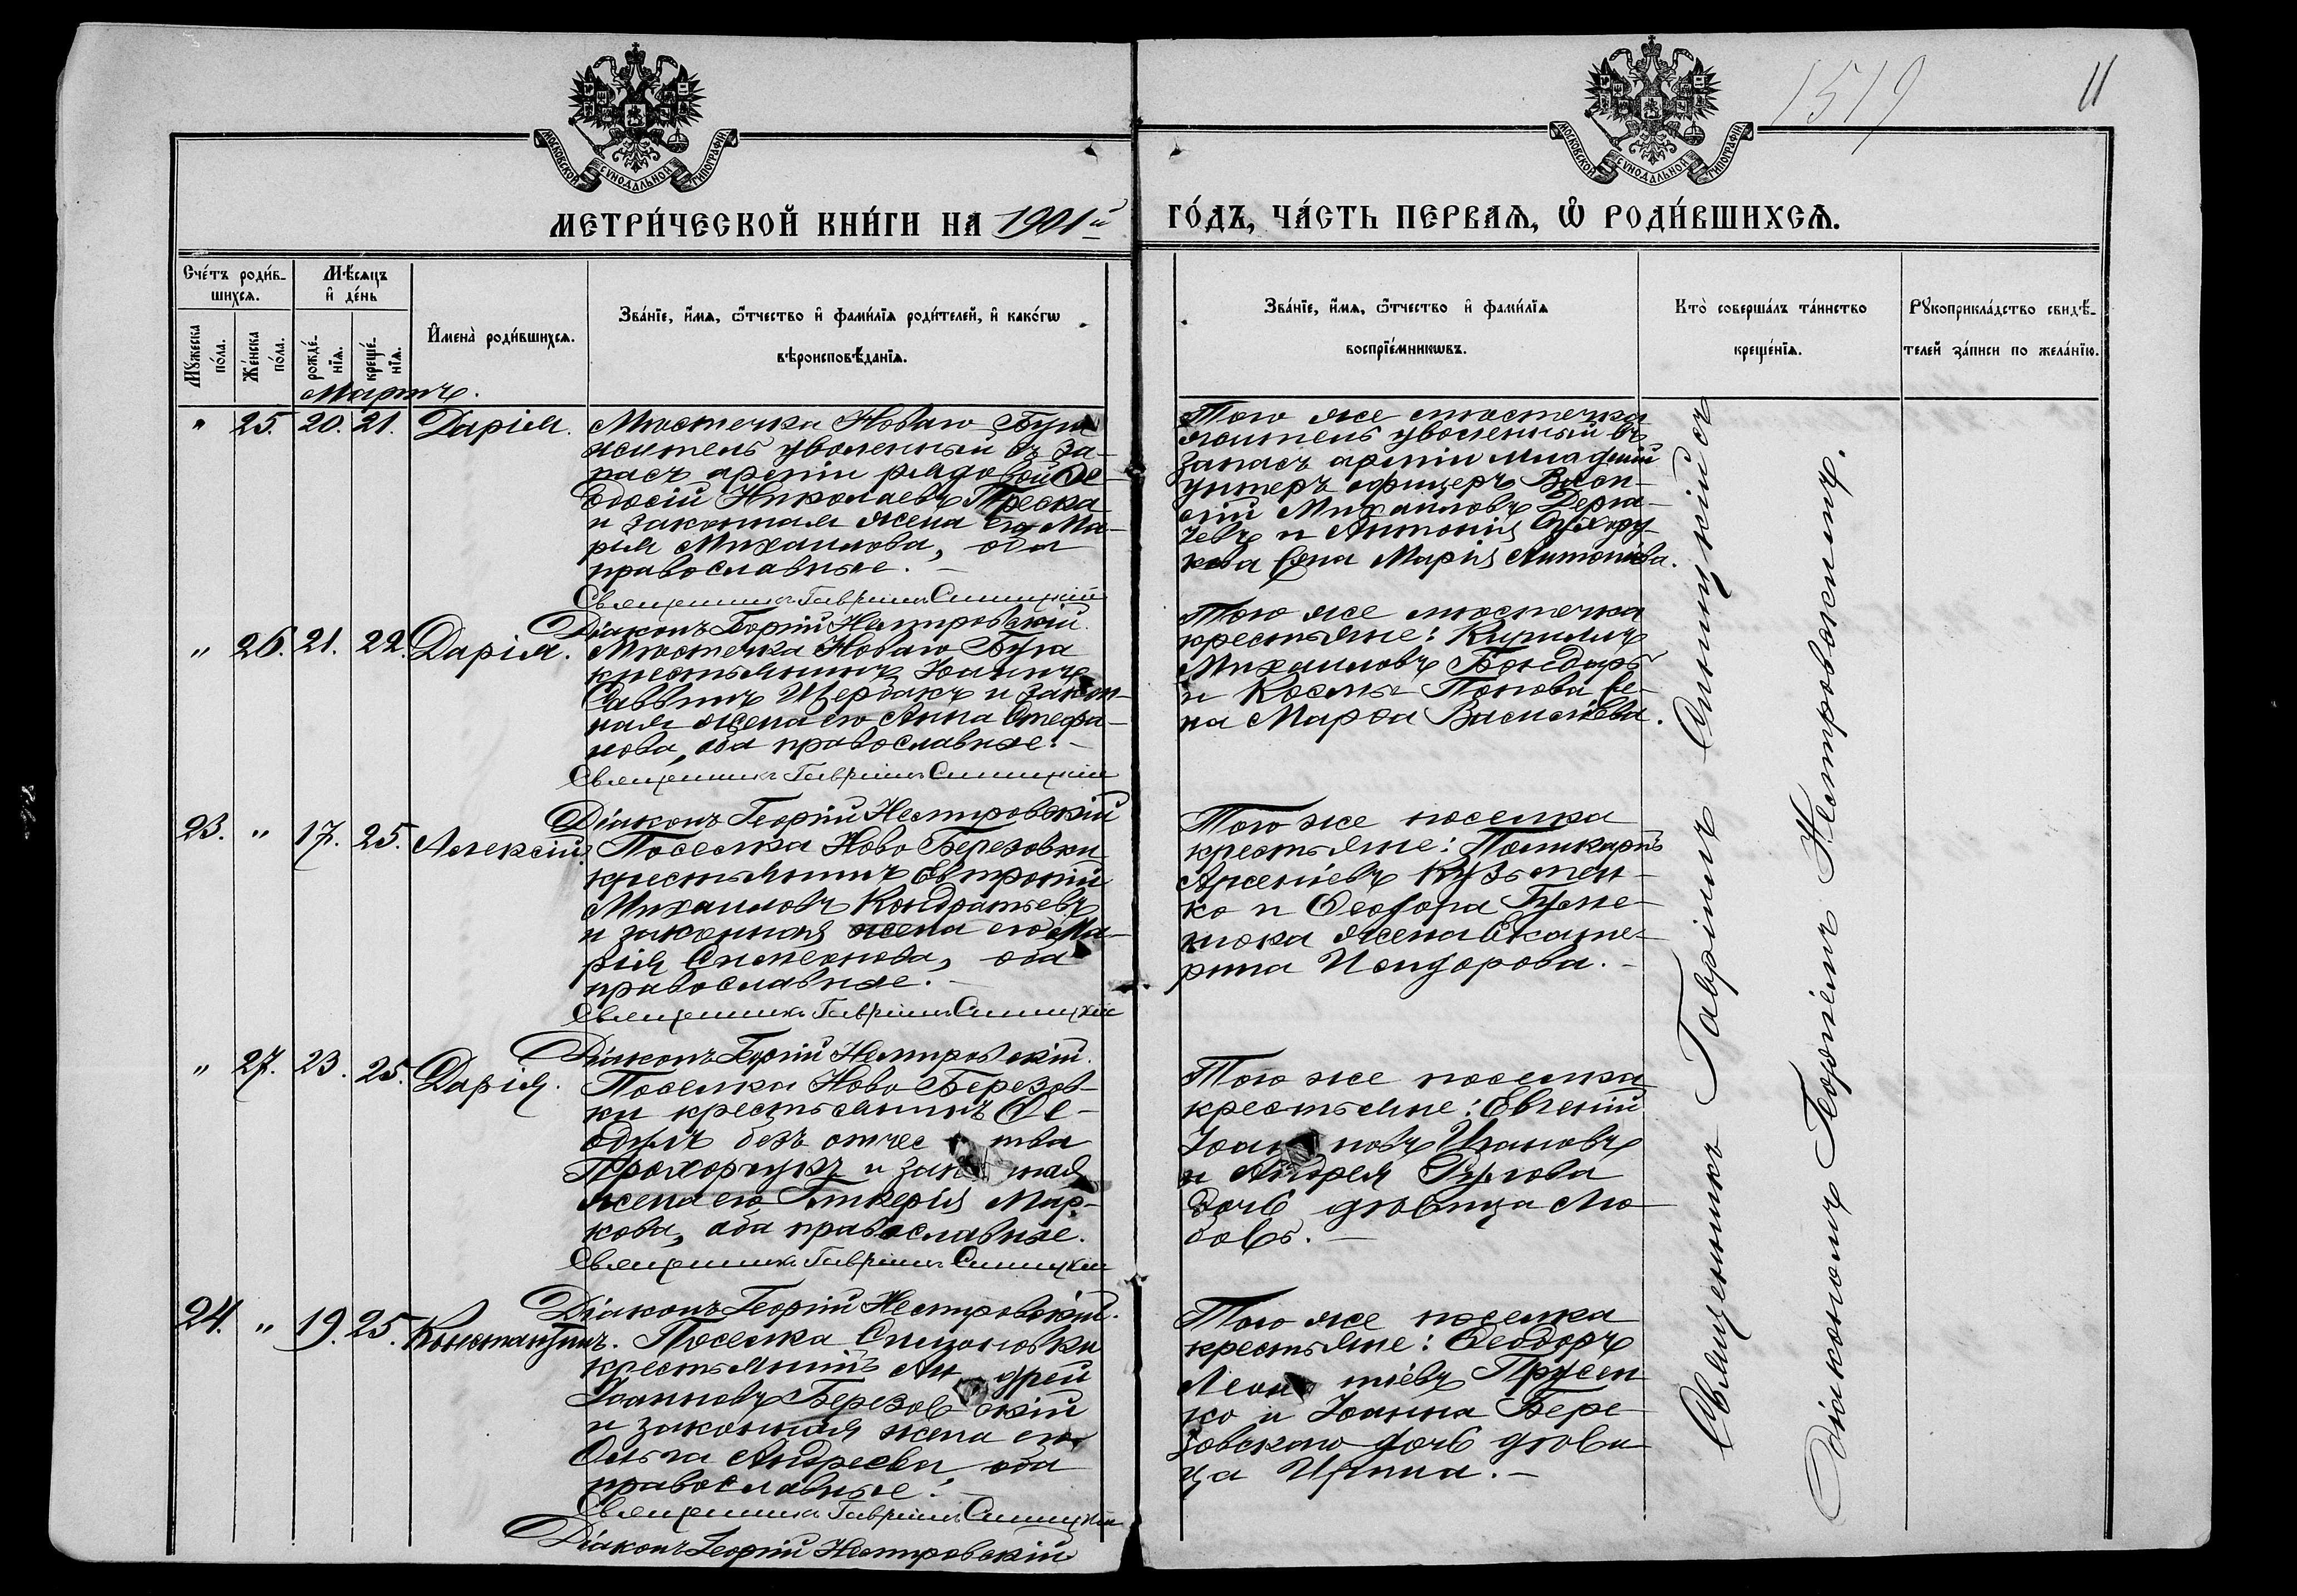 1519
11
МОСКОВСКОЙ СѴНОДАЛЬНОЙ ТИПОГРАФІИ
МОСКОВСКОЙ СѴНОДАЛЬНОЙ ТИПОГРАФІИ
МЕТРИ́ЧЕСКОЙ КНИ́ГИ НА 1901й
ГО́ДЪ, ЧА́СТЬ ПЕРВАѦ, Ѡ҆ РОДИ́ВШИХСѦ.
Счéтъ роди́в-
шихсѧ.
Мѣ́сѧцъ
и҆ де́нь
Мꙋ́жеска
по́ла.
Же́нска
по́ла.
рожде́-
нїѧ.
креще́-
нїѧ.
И҆мена̀ роди́вшихсѧ.
Зва́нїе, и҆́мѧ, ѻ҆́тчество и҆ фами́лїѧ роди́телей, и҆ како́гѡ
вѣроисповѣ́данїѧ.
Зва́нїе, и҆́мѧ, ѻ҆́тчество и҆ фами́лїѧ
воспрїе́мникѡвъ.
Кто̀ соверша́лъ та́инство
креще́нїѧ.
Рꙋкоприкла́дство свидѣ́-
телей за́писи по жела́нїю.
Мартъ.
" 25. 20. 21. Дарія.
Мѣстечка Новаго Буга
житель уволенный въ за-
пасъ арміи рядовой Ѳе-
одосій Николаевъ Преска
и законная жена его Ма-
рія Михаилова, оба
православные.
Священникъ Гавріилъ Синицкій
Діаконъ Георгій Нестровскій.
Того же мѣстечка
житель уволенный въ
запасъ арміи младшій
унтеръ офицеръ
Михаиловъ
и Антонія
кова жена Марія Антонiева.
" 26. 21. 22. Дарія.
Мѣстечка Новаго Буга
крестьянинъ Іоаннъ
Саввинъ Щербакъ и закон-
ная жена его Анна Стефа-
нова, оба православные.
Священникъ Гавріилъ Синицкій
Діаконъ Георгій Нестровскій
Того же мѣстечка
крестьяне: Кириллъ
Михаиловъ Бондарь
и Косьмы Попова же-
на Марфа Васильева.
23. " 17. 25. Алексій.
Поселка Ново Березовки
крестьянинъ Евтропій
Михаиловъ Кондратьевъ
и законная жена его Ма-
рія Симеонова, оба
православные.
Священникъ Гавріилъ Синицкій
Діаконъ Георгій Нестровскій.
Того же поселка
крестьяне: Поликарпъ
Арсеніевъ Кузьмен-
ко и Ѳеодора Гуме-
нюка жена Екате-
рина Исидорова.
" 27. 23. 25. Дарія.
Поселка Ново Березов-
ки крестьянинъ Ѳе-
одулъ безъ отчества
Прохорчукъ и законная
жена его Гликерія Мар-
кова, оба православные.
Священникъ Гавріилъ Синицкій
Діаконъ Георгій Нестровскій.
Того же поселка
крестьяне: Евгеній
Іоанновъ Ивановъ
и Андрея Гулова
дочь дѣвица Лю-
бовь.
24. " 19. 25. Константинъ.
Поселка Симоновки
крестьянинъ Андрей
Іоанновъ Березовскій
и законная жена его
Ольга Андреева, оба
православные.
Священникъ Гавріилъ Синицкій
Діаконъ Георгій Нестровскій
Того же поселка
крестьяне: Ѳеодоръ
Леонтіевъ Прусен-
ко и Іоанна Бере-
зовскаго дочь дѣви-
ца Ирина.
Священникъ Гавріилъ Синицкій съ
Діакономъ Георгіемъ Нестровскимъ.